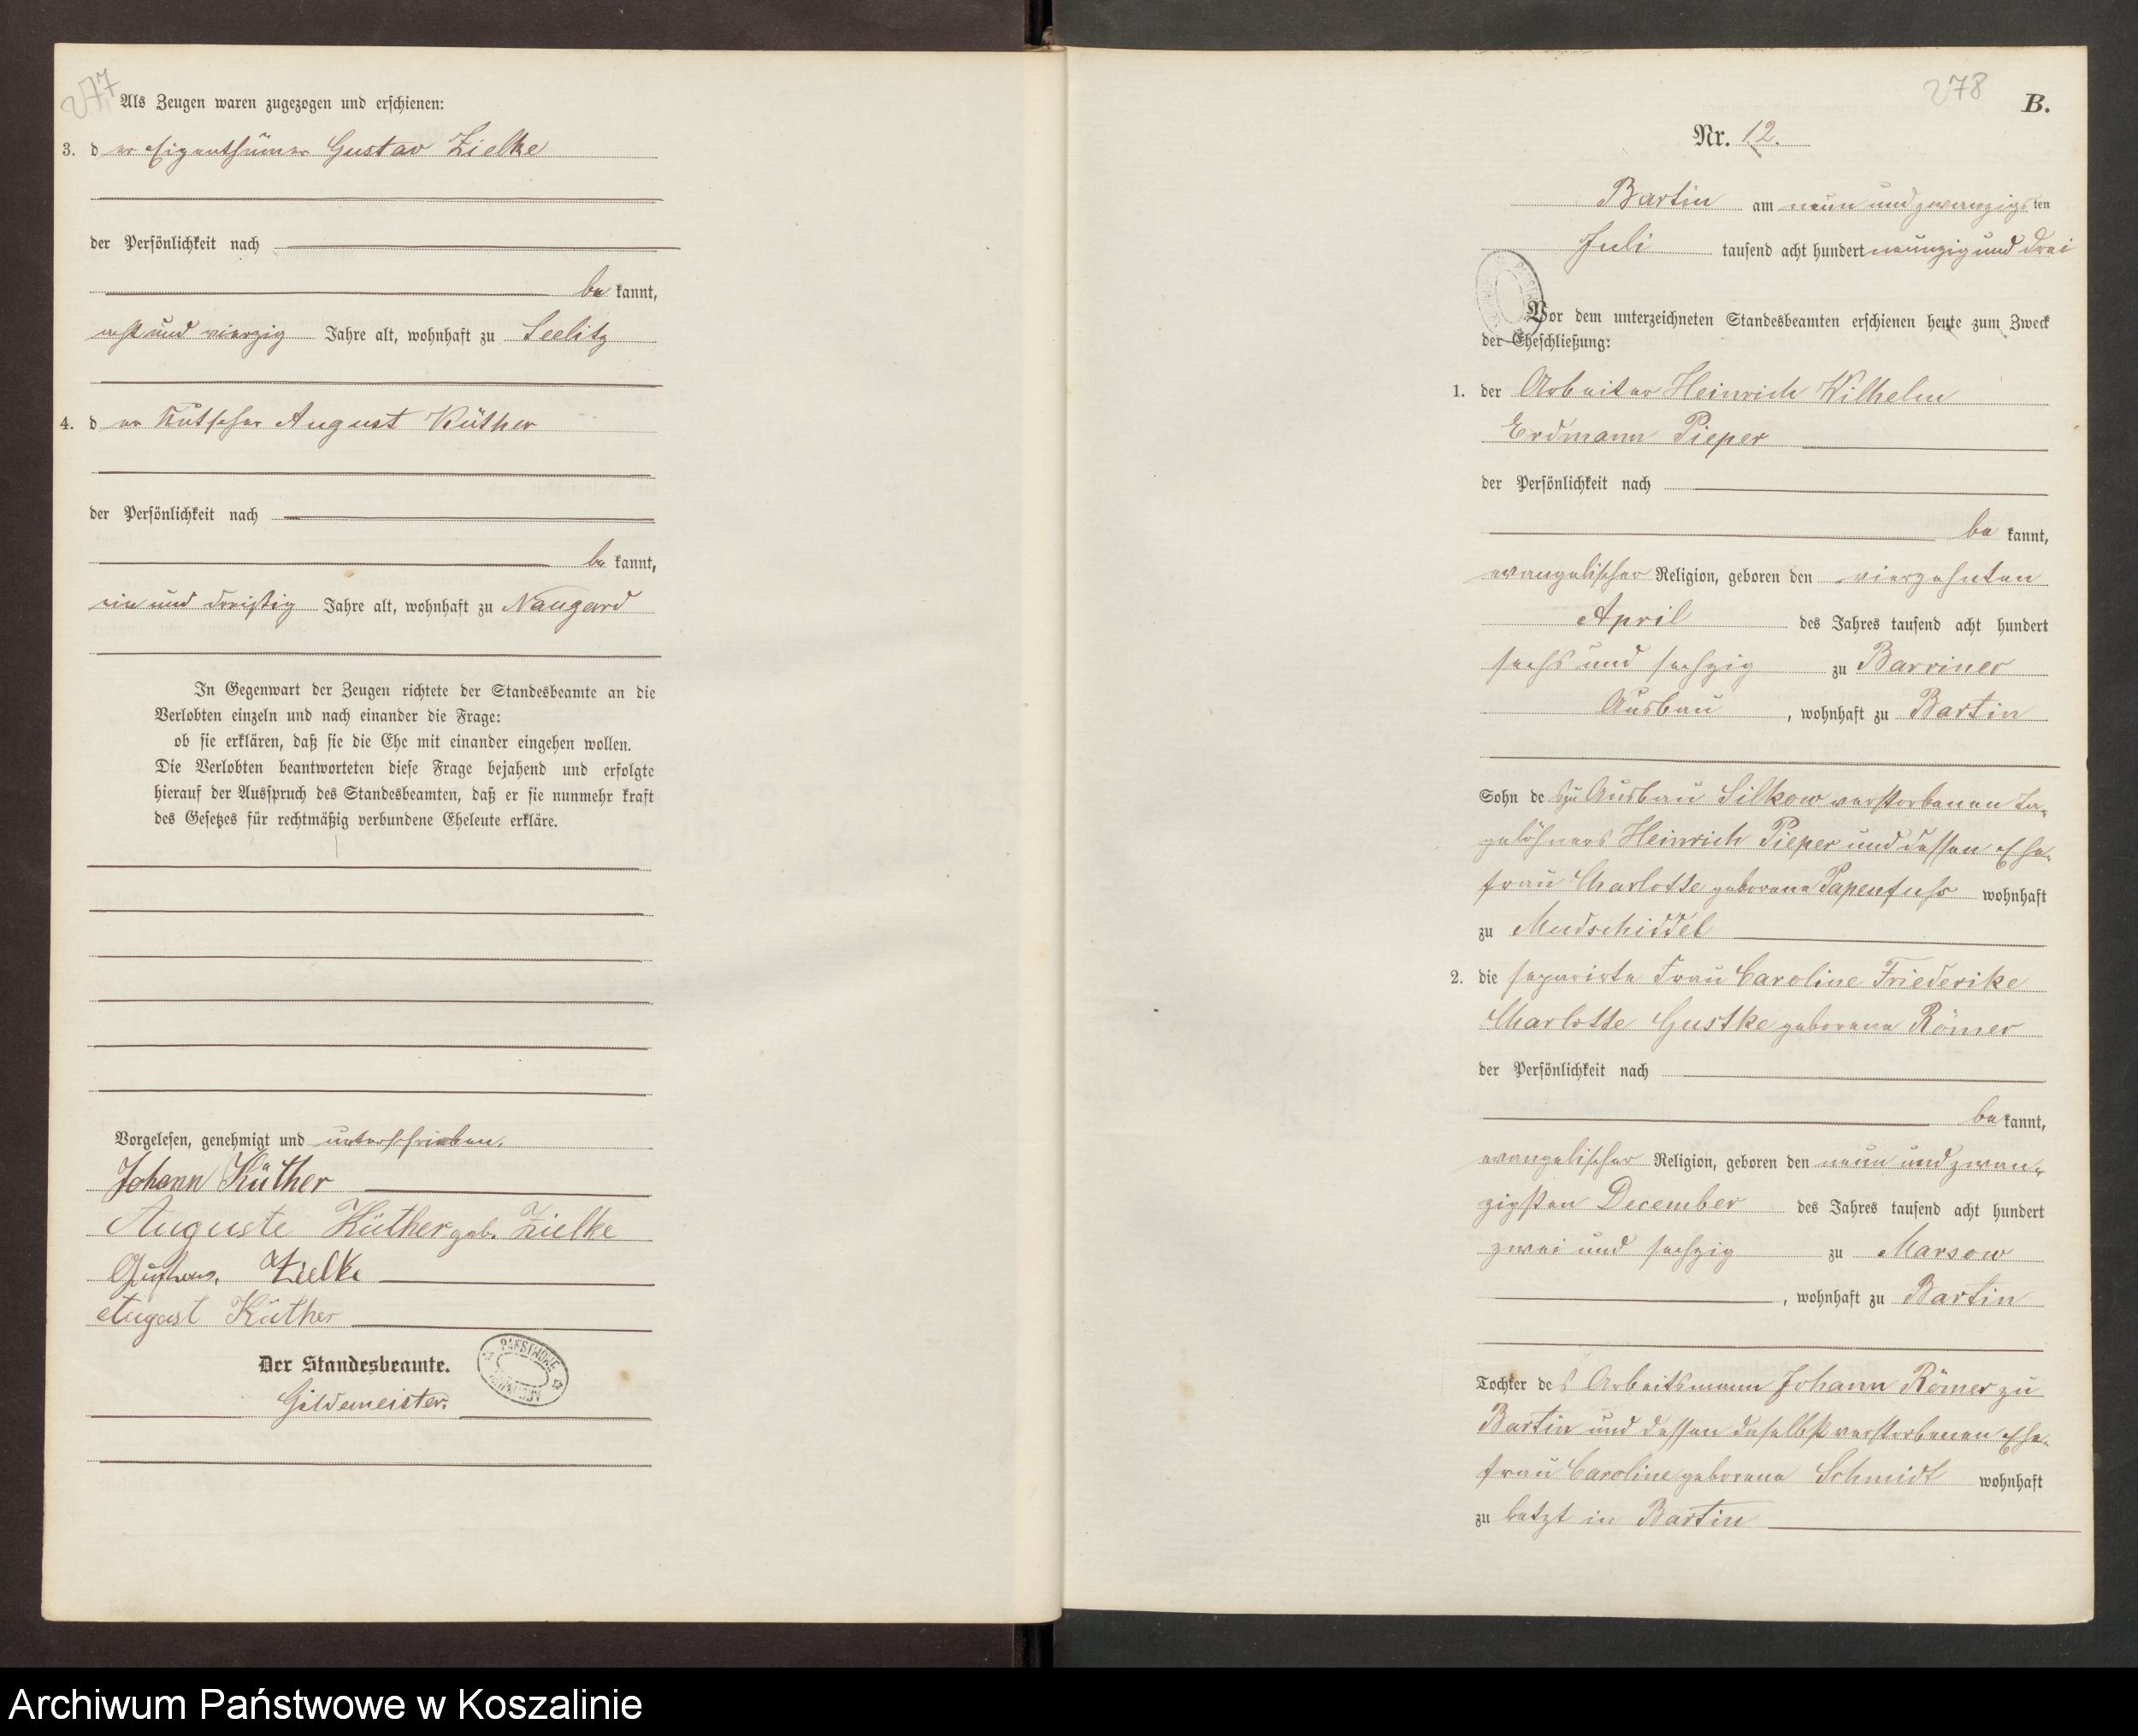 277
Als Zeugen waren zugezogen und erschienen:
3. der Eigenthümer Gustav Zielke
der Persönlichkeit nach
bekannt,
acht und vierzig Jahre alt, wohnhaft zu Seelitz
4. der Kutscher August Küther
der Persönlichkeit nach
bekannt,
ein und dreißig Jahre alt, wohnhaft zu Naugard
In Gegenwart der Zeugen richtete der Standesbeamte an die
Verlobten einzeln und nach einander die Frage:
ob sie erklären, daß sie die Ehe mit einander eingehen wollen.
Die Verlobten beantworteten diese Frage bejahend und erfolgte
hierauf der Ausspruch des Standesbeamten, daß er sie nunmehr kraft
des Gesetzes für rechtmäßig verbundene Eheleute erkläre.
Vorgelesen, genehmigt und unterschrieben.
Johann Küther
Auguste Küther geb. Zielke
Gustav Zielke
August Küther
Der Standesbeamte.
Gildemeister.
278
B.
Nr. 12.
Bartin am neun und zwanzigsten
Juli tausend acht hundert neunzig und drei
Vor dem unterzeichneten Standesbeamten erschienen heute zum Zweck
der Eheschließung:
1. der Arbeiter Heinrich Wilhelm
Erdmann Pieper
der Persönlichkeit nach
bekannt,
evangelischer Religion, geboren den vierzehnten
April des Jahres tausend acht hundert
sechs und sechzig zu Barviner
Ausbau, wohnhaft zu Bartin
Sohn de zu Ausbau Silkow verstorbenen Ta-
gelöhners Heinrich Pieper und dessen Ehe-
frau Charlotte geborene Papenfuhs wohnhaft
zu Mudschiddel
2. die separirte Frau Caroline Friederike
Charlotte Gustke geborene Römer
der Persönlichkeit nach
bekannt,
evangelischer Religion, geboren den neun und zwan-
zigsten December des Jahres tausend acht hundert
zwei und sechzig zu Marsow
, wohnhaft zu Bartin
Tochter des Arbeitsmann Johann Römer zu
Bartin und dessen daselbst verstorbenen Ehe-
frau Caroline geborene Schmidt wohnhaft
zu letzt in Bartin
Archiwum Państwowe w Koszalinie